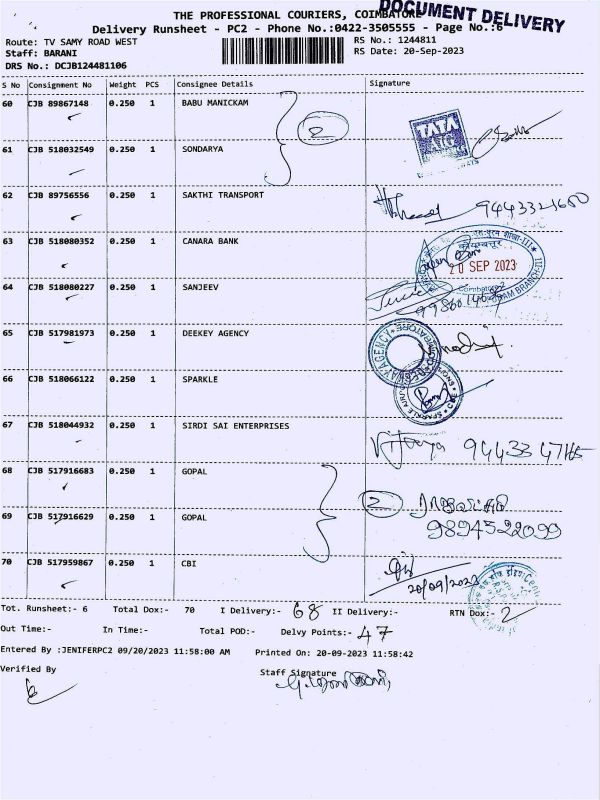 THE PROFESSIONAL COURIERS, COIMBATORE
DOCUMENT DELIVERY
Delivery Runsheet - PC2 - Phone No.:0422-3505555 - Page No.:6
Route: TV SAMY ROAD WEST RS No.: 1244811
Staff: BARANI RS Date: 20-Sep-2023
DRS No.: DCJB124481106
S No Consignment No Weight PCS Consignee Details Signature
60 CJB 89867148 0.250 1 BABU MANICKAM
2
TATA AIG
61 CJB 518032549 0.250 1 SONDARYA
62 CJB 89756556 0.250 1 SAKTHI TRANSPORT
63 CJB 518080352 0.250 1 CANARA BANK
20 SEP 2023
64 CJB 518080227 0.250 1 SANJEEV
65 CJB 517981973 0.250 1 DEEKEY AGENCY
66 CJB 518066122 0.250 1 SPARKLE
67 CJB 518044932 0.250 1 SIRDI SAI ENTERPRISES
68 CJB 517916683 0.250 1 GOPAL
2
69 CJB 517916629 0.250 1 GOPAL 9894522099
70 CJB 517959867 0.250 1 CBI
20/09/2023
Tot. Runsheet:- 6 Total Dox:- 70 I Delivery:- 68 II Delivery:- RTN Dox:- 2
Out Time:- In Time:- Total POD:- Delvy Points:- 47
Entered By :JENIFERPC2 09/20/2023 11:58:00 AM Printed On: 20-09-2023 11:58:42
Verified By Staff Signature